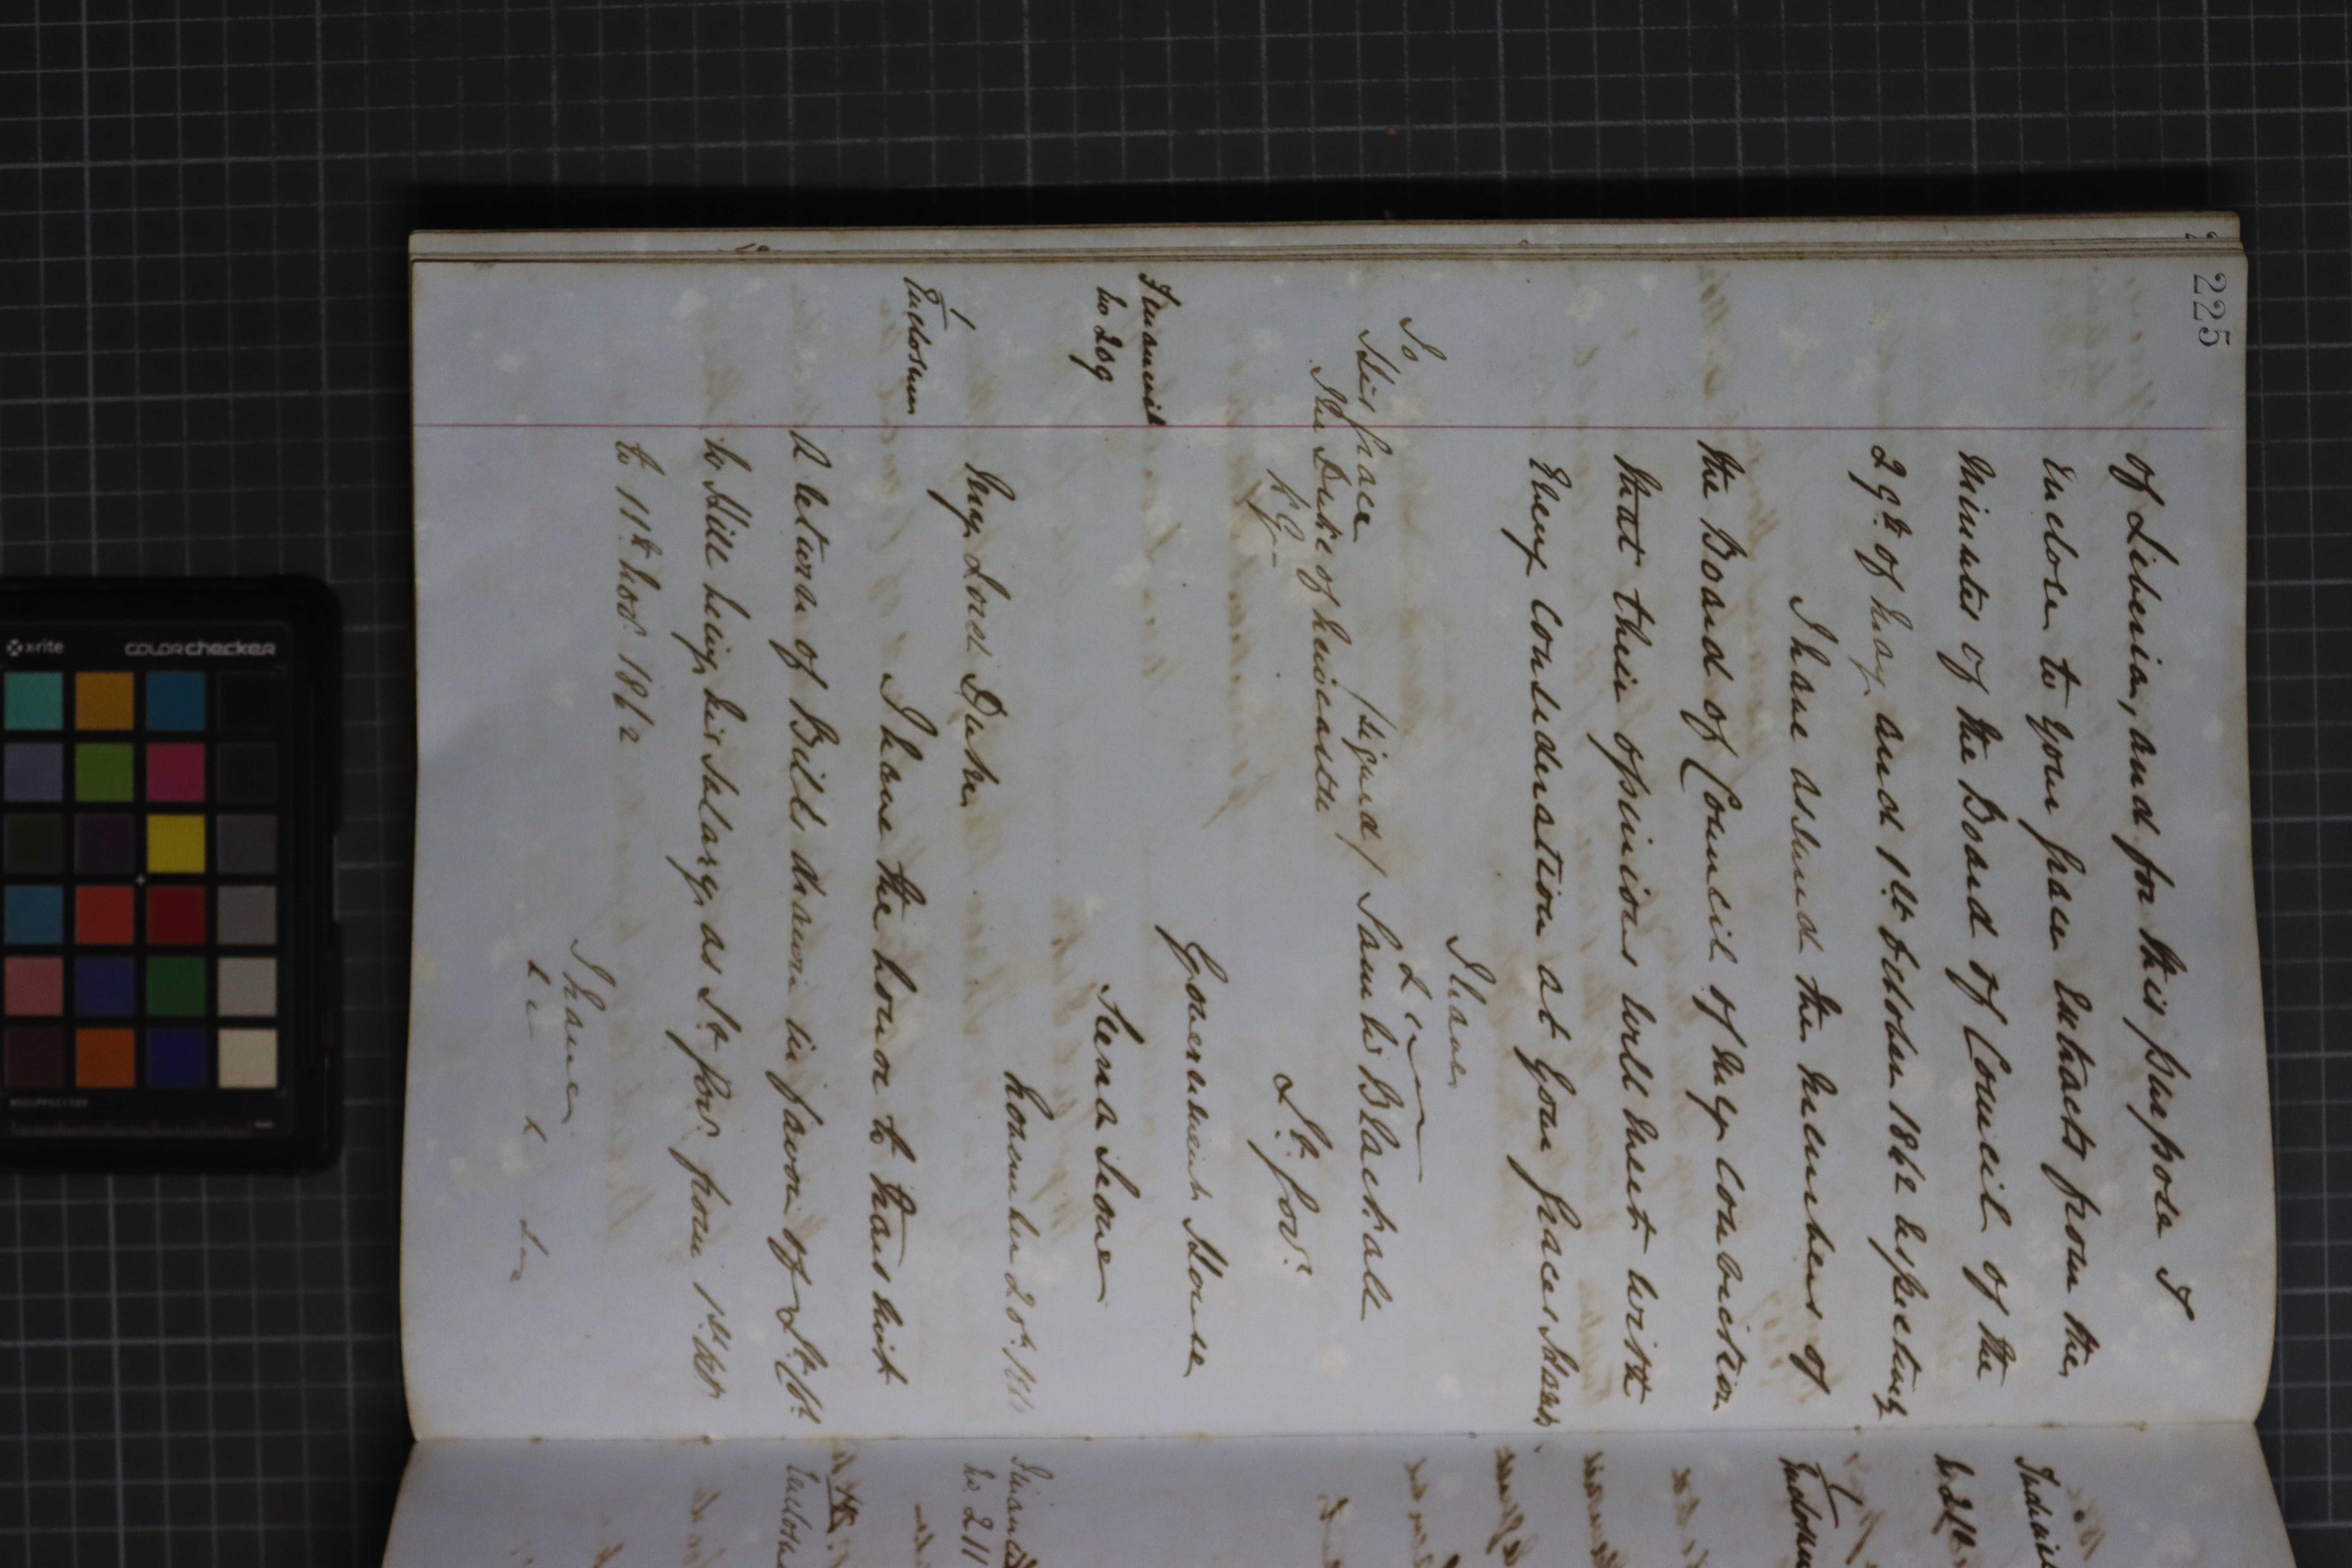 225
of Liberia, and for this purpose I
Enclose to your Grace Extracts from the
Minutes of the Board of Council of the
29th of May and 1st October 1862 respecting
I have assured the Members of
the Board of Council of my conviction
that their opinions will meet with
Every consideration at Your Graces
I have
&c
To
His Grace (signed) Sam W Blackall
The Duke of Newcastle
K.G. Lt. Govr.
Government House
Financial
No 209
Sierra Leone
November 20th
My Lord Duke
1
Enclosure
I have the honor to transmit
a return of Bills drawn in favor of Lt Col.
Hill being his Salary as Lt Govr. from 1st
to 11th Novr. 1862
I have
&c &
No 211
Enclosure
xrite
colorchecker